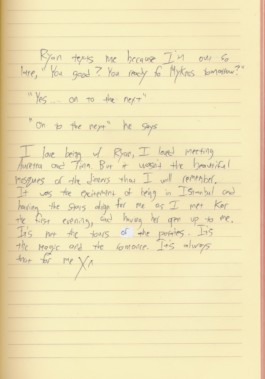 Ryan texts me because I'm out so
late, "You good? You ready for Mykonos tomorrow?"
"Yes... on to the next"
"On to the next" he says
I love being w/ Ryan, I loved meeting
and Tina. But it wasn't the beautiful
mosques or the dinners that I will remember.
It was the excitement of being in Istanbul and
having the stars align for me as I met
the first evening, and having her open up to me.
It's not the tours of the palaces. It's
the magic and the romance. It's always
that for me